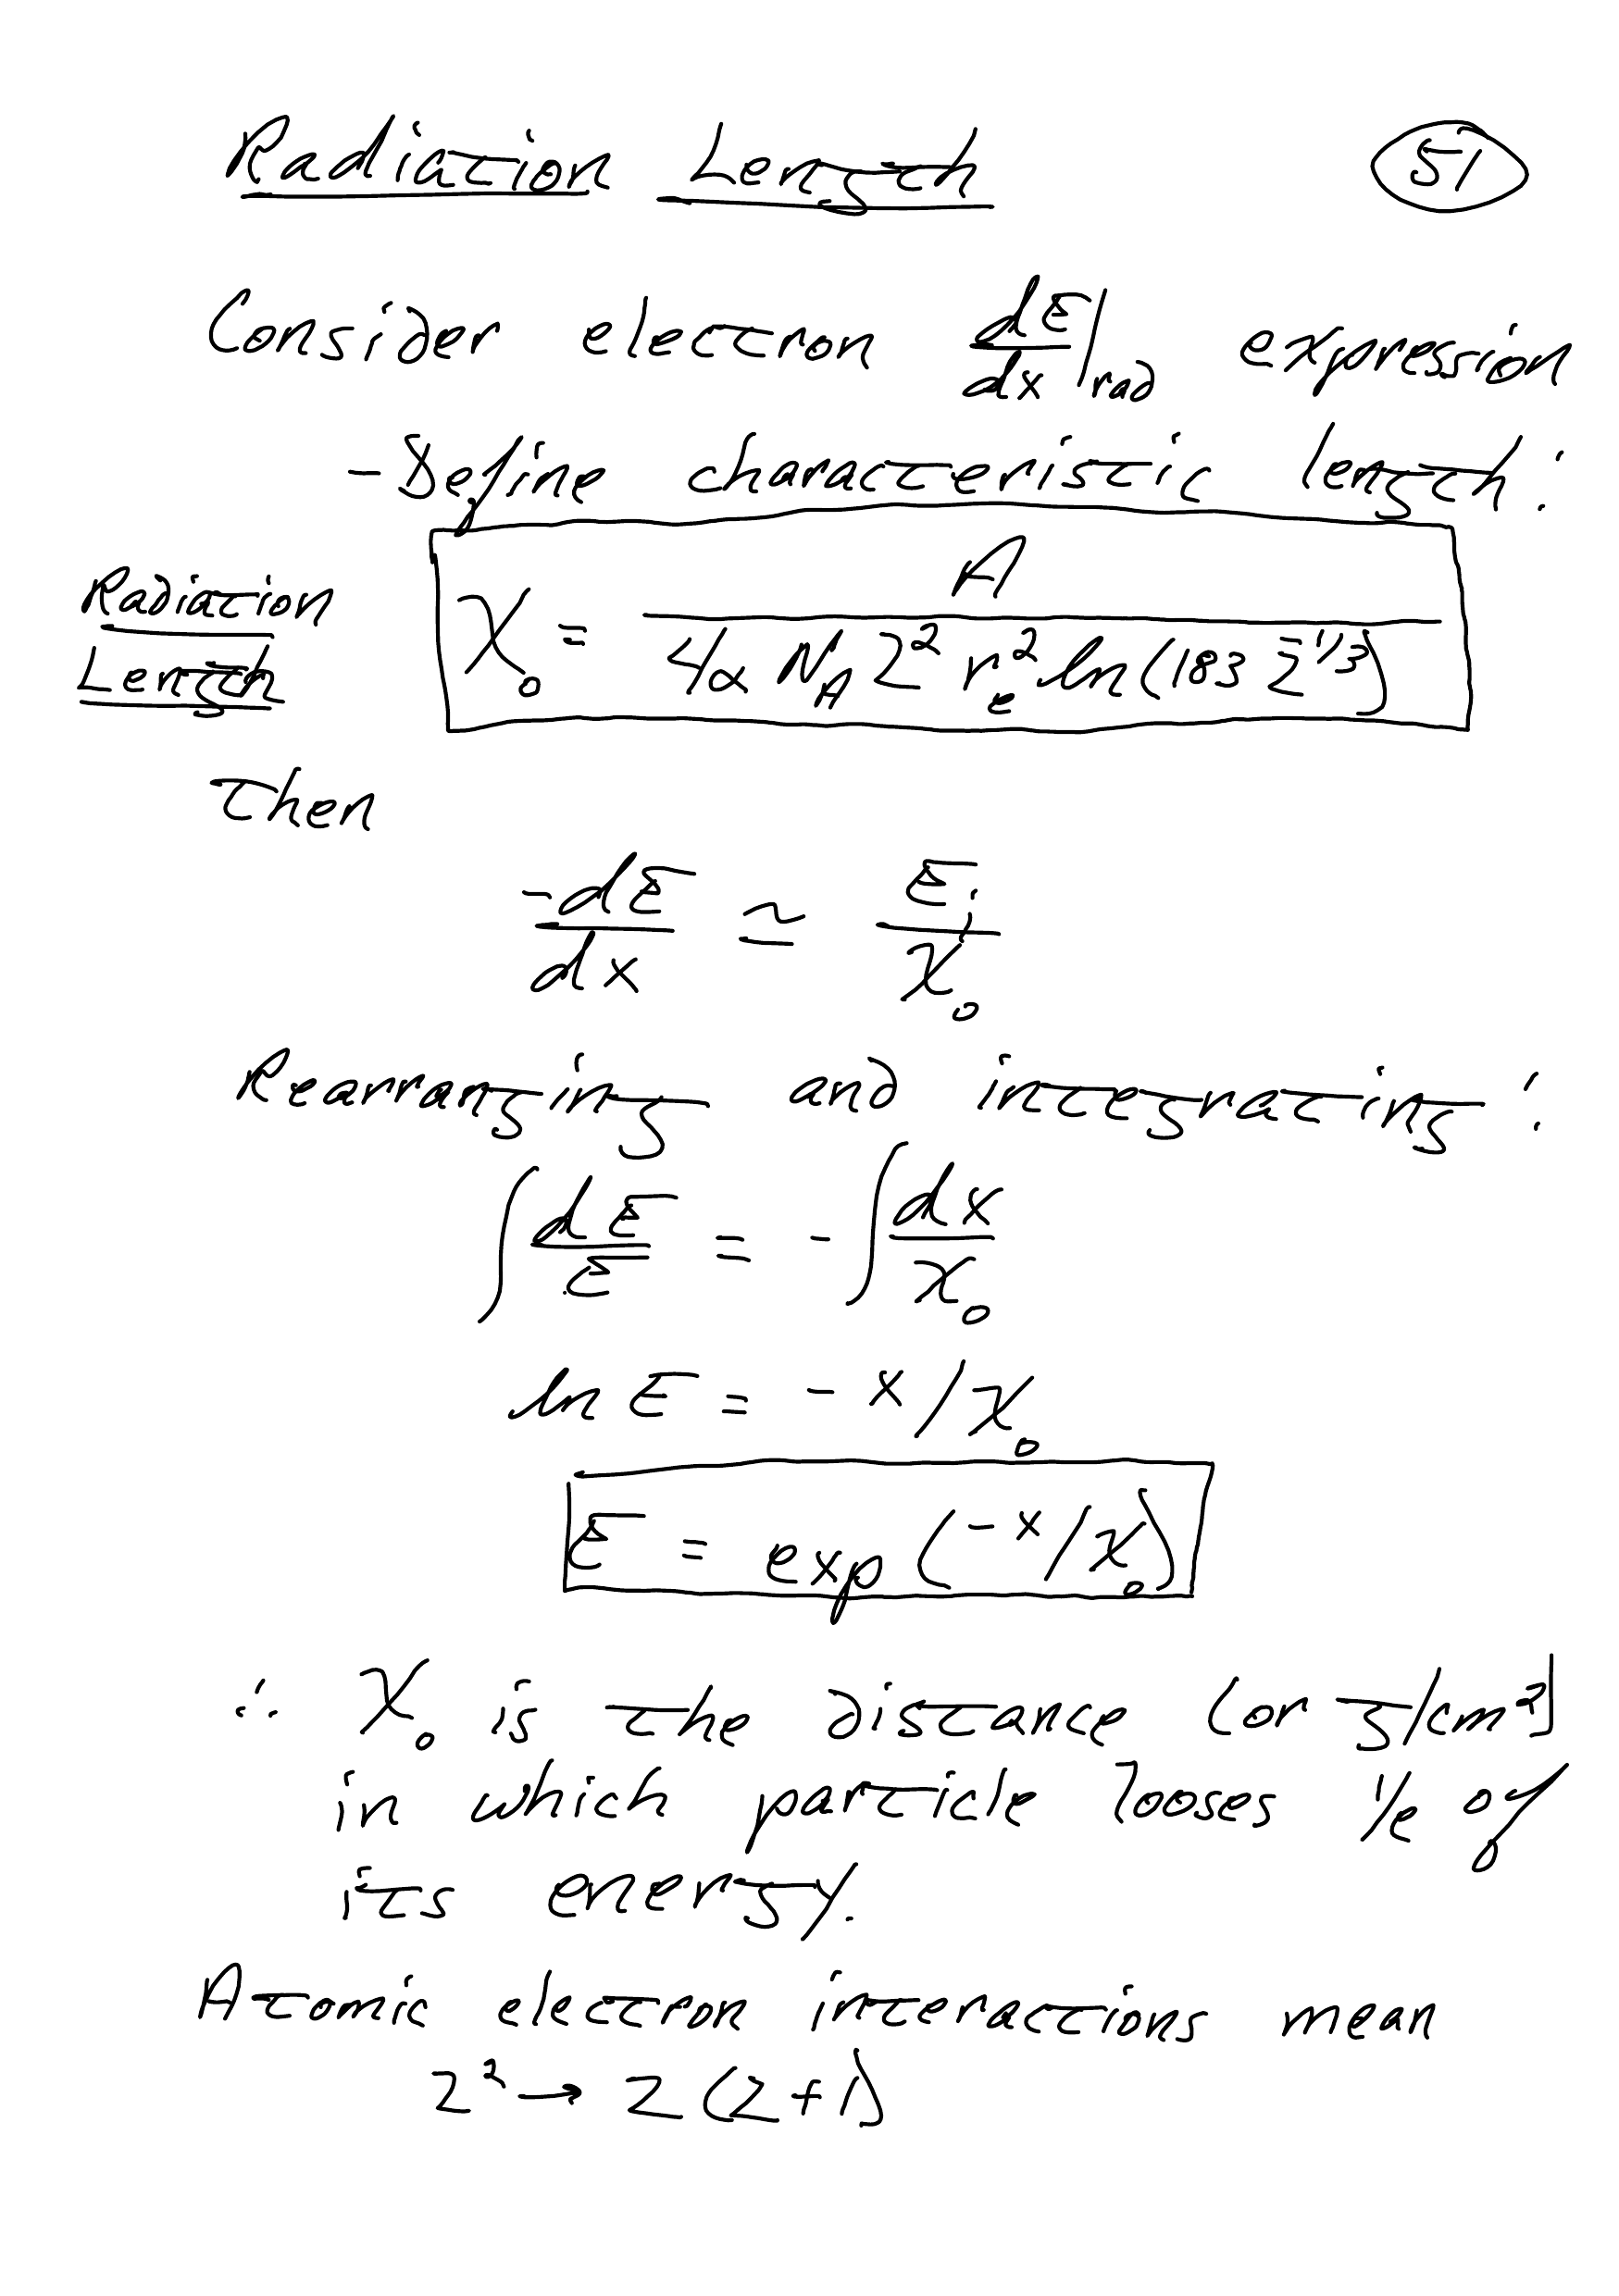 Radiation Length
51
Consider electron dE/dx|rad expression
- Define characteristic length:
Radiation
Length
X₀ = A / (4α N_A Z² r_e² ln(183 Z^(-1/3)))
Then
-dE/dx ≃ Eᵢ/X₀
Rearranging and integrating:
∫ dE/E = - ∫ dx/X₀
ln E = - x/X₀
E = exp(-x/X₀)
∴ X₀ is the distance (or g/cm²)
in which particle looses 1/e of
its energy.
Atomic electron interactions mean
Z² → Z(Z+1)